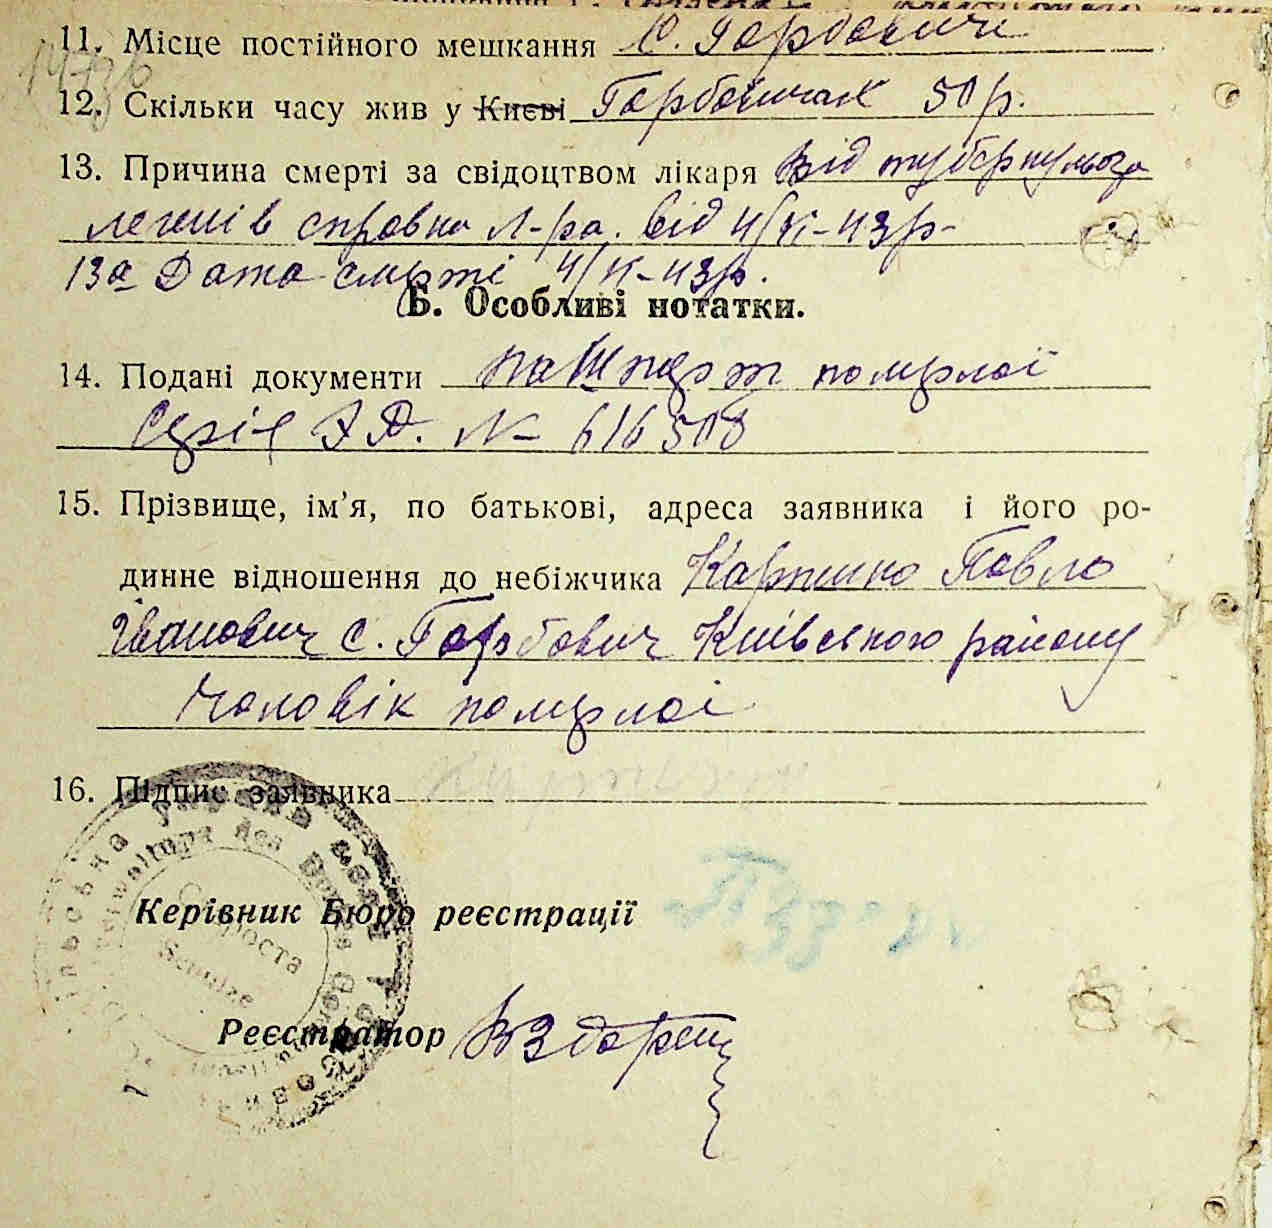 11. Місце постійного мешкання С. Горбовичи
12. Скільки часу жив у Києві Горбовичах 50 р.
13. Причина смерті за свідоцтвом лікаря Від туберкульоза
легенів справка Л-ра. від 4/XI-43р-
13а Дата смерті 4/XI-43р.
Б. Особливі нотатки.
14. Подані документи пашпорт померлої
Серія № 616508
15. Прізвище, ім’я, по батькові, адреса заявника і його ро-
динне відношення до небіжчика Павло
Іванович с. Горбович Київського району
Чоловік померлої
16. Підпис заявника
Керівник Бюро реєстрації
Староста
Schulze
Реєстратор